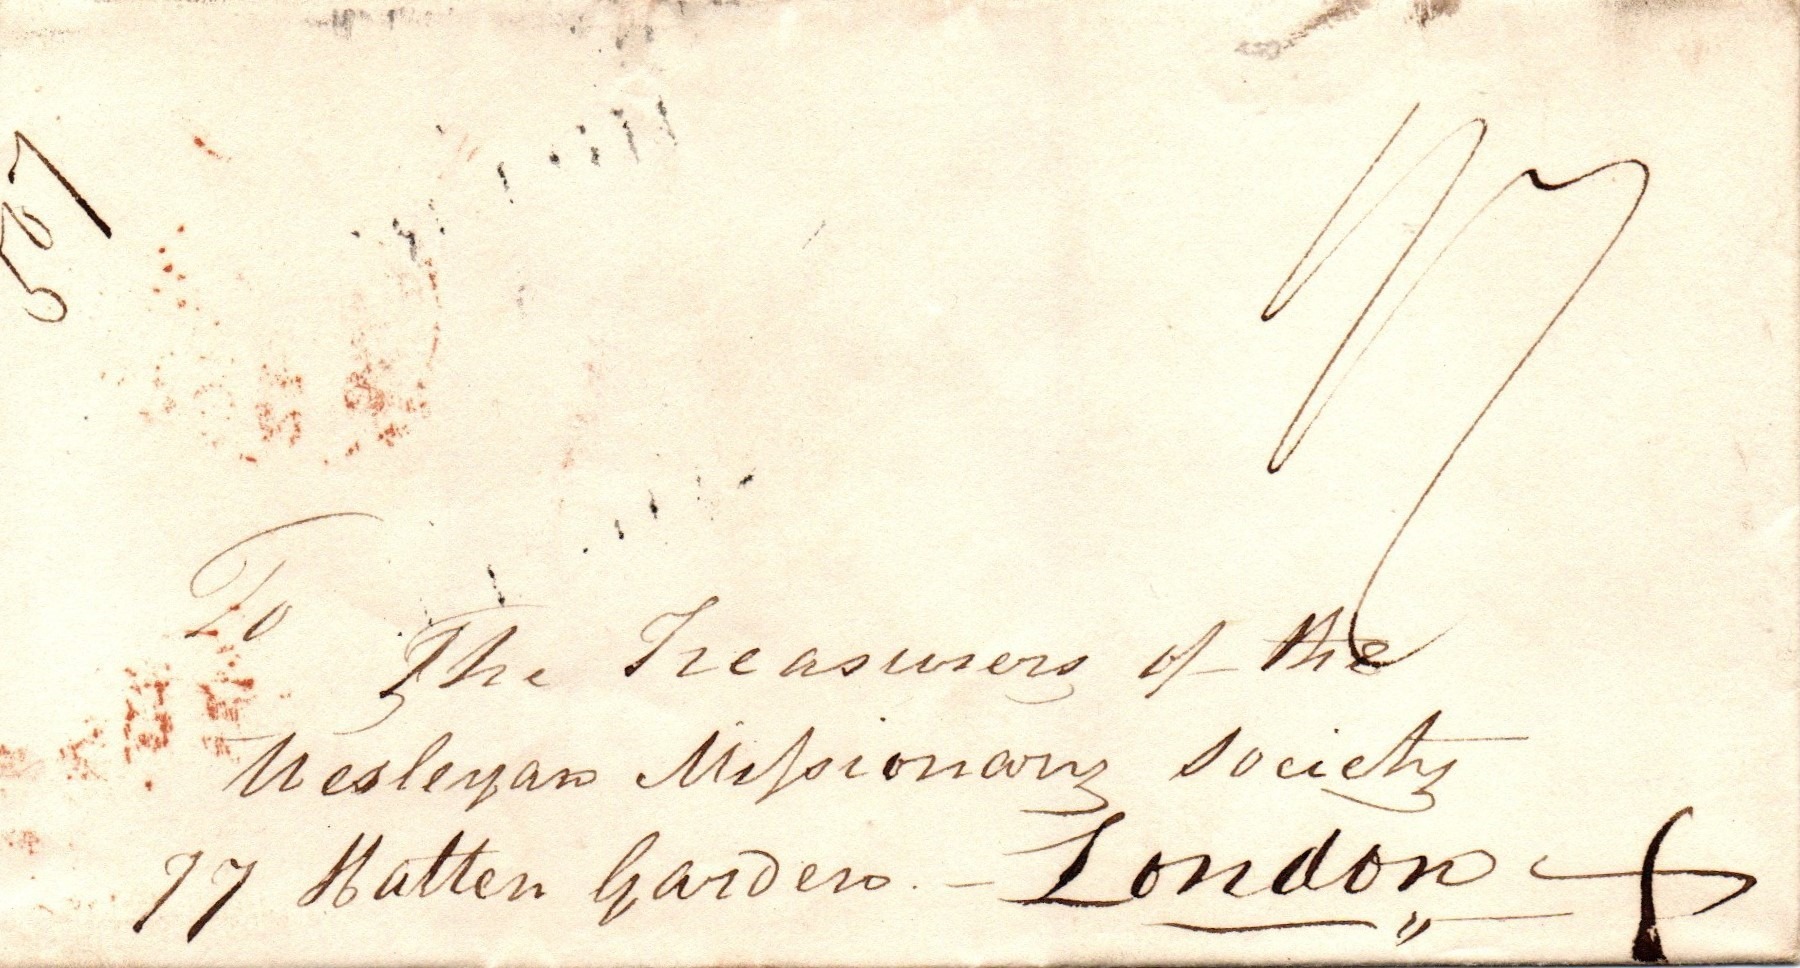 507
To
The Treasurers of the
Wesleyan Missionary Society
77 Hatten Garden — London